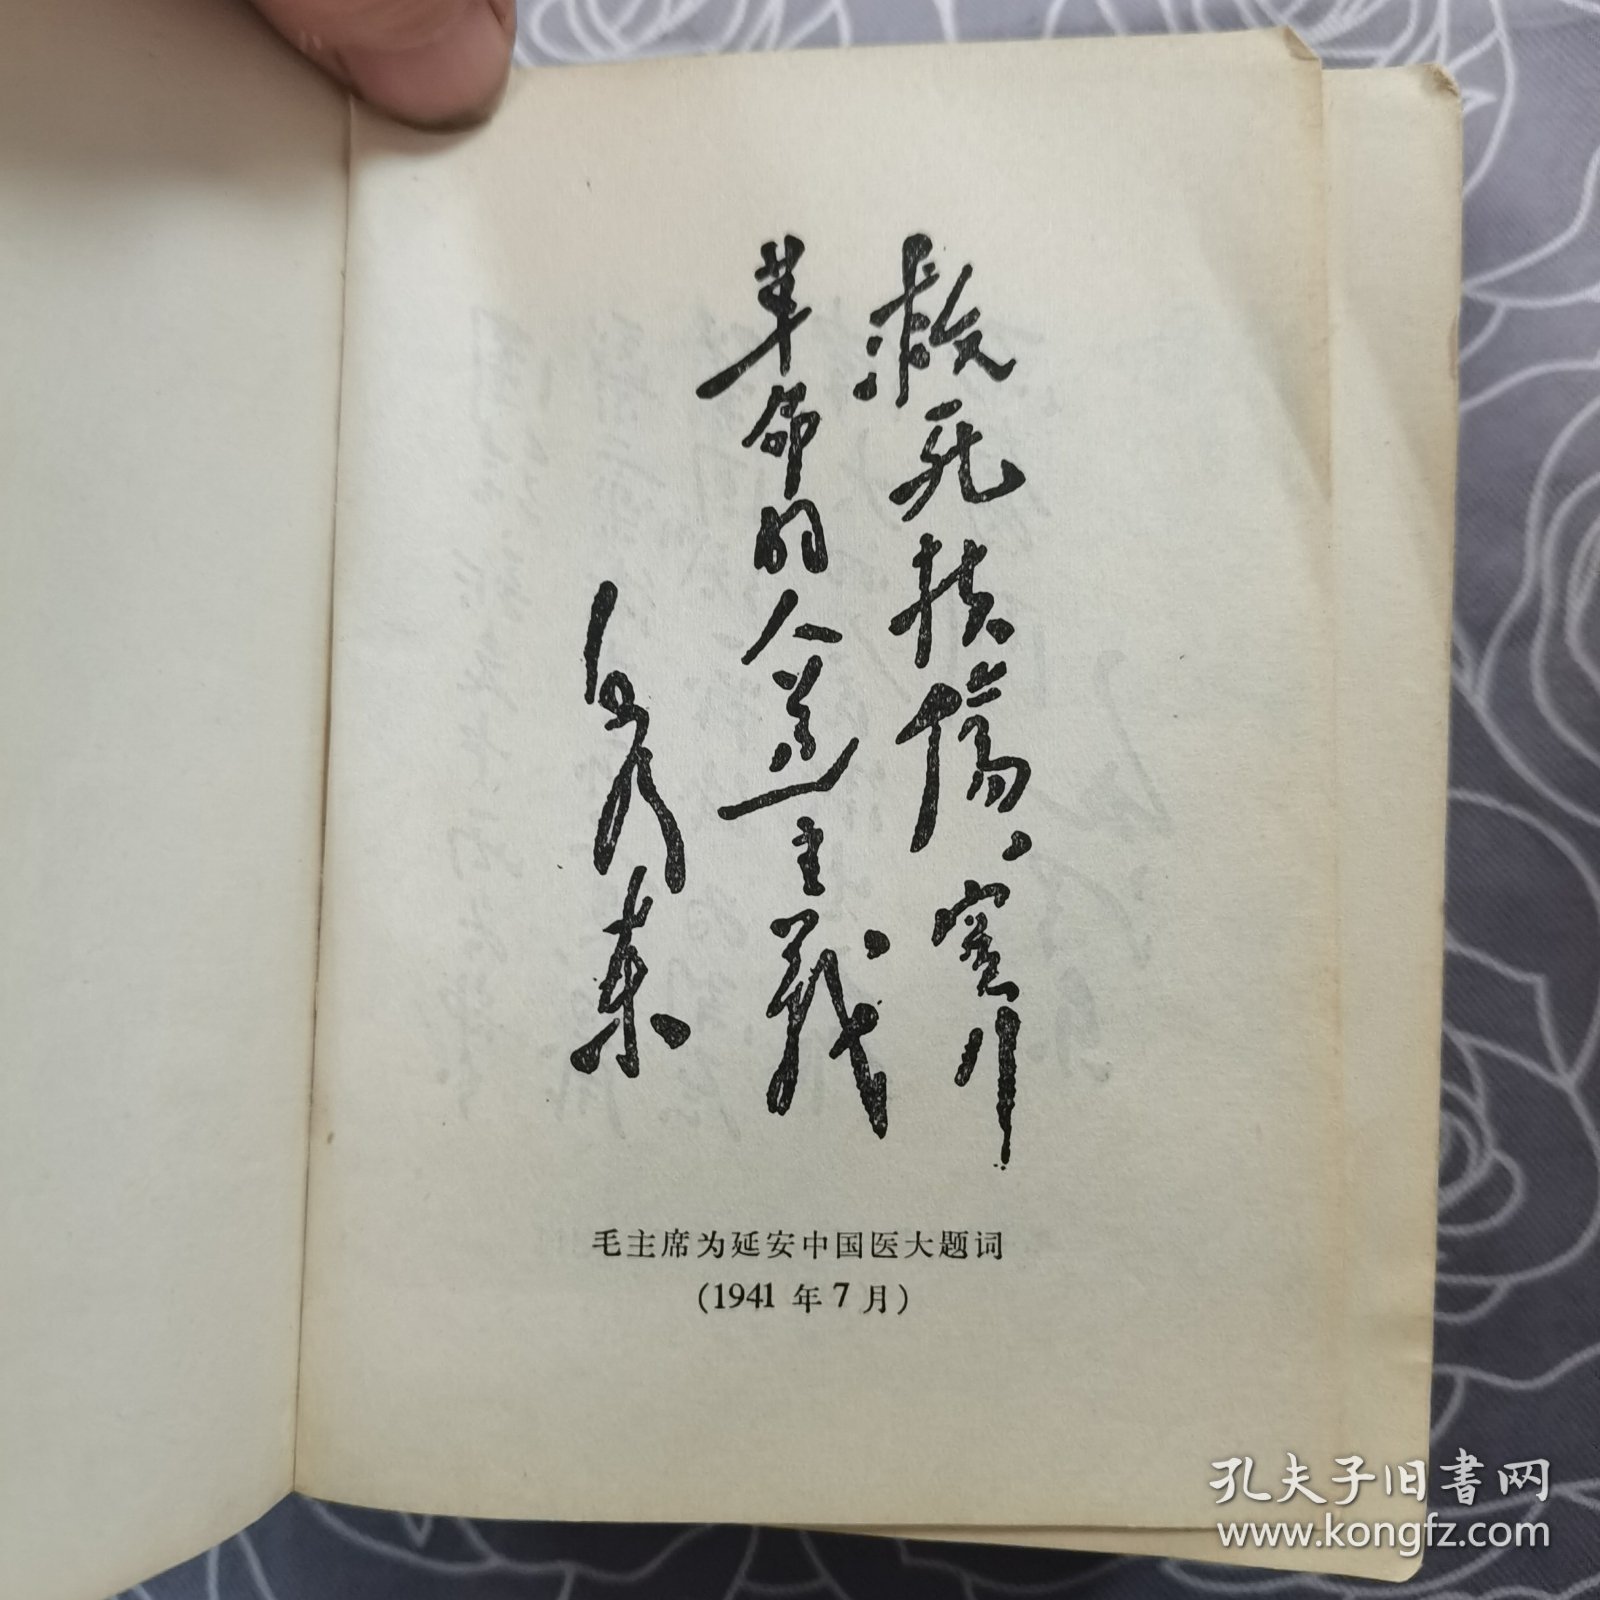 救死扶傷、实行
革命的人道主義
毛泽东
毛主席为延安中国医大题词
(1941年7月)
孔夫子旧书网
www.kongfz.com